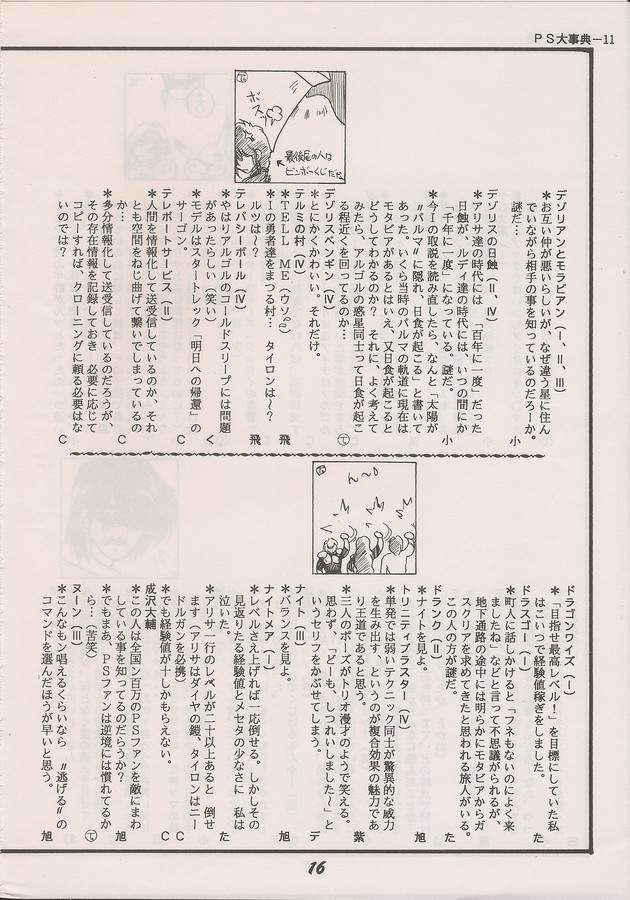 PS大事典－11
ボスッ
最後尾の人は
ビンボーくじだな
デゾリアンとモタビアン（I、II、III）
＊お互い仲が悪いらしいが、なぜ違う星に住ん
でいながら相手の事を知っているのだろーか。
謎だ…　小
デゾリスの日蝕（II、IV）
＊アリサ達の時代には、「百年に一度」だった
日蝕が、ルディ達の時代には、いつの間にか
「千年に一度」になっている。謎だ。　小
＊今Iの取説を読み直したら、なんと「太陽が
〝パルマ〟に隠れ、日食が起こる」と書いて
あった。いくら当時のパルマの軌道に現在は
モタビアがあるとはいえ、又日食が起こると
どうしてわかるのか？　それに、よく考えて
みたら、アルゴルの惑星同士って日食が起こ
る程近くを回ってるのか？
デゾリスペンギン（IV）
＊とにかくかわいい。それだけ。
テルミの村（IV）
＊TELL ME（ウソ）　飛
＊Iの勇者達をまつる村…　タイロンは～？
ルツは～？　飛
テレパシーボール（IV）
＊やはりアルゴルのコールドスリープには問題
があったらしい（笑い）　く
＊モデルはスタートレック「明日への帰還」の
サーゴン。　C
テレポートサービス（II）
＊人間を情報化して送受信しているのか、それ
とも空間をねじ曲げて繋いでしまっているの
か…　C
＊多分情報化して送受信しているのだろうが、
その存在情報を記録しておき　必要に応じて
コピーすれば、クローニングに頼る必要はな
いのでは？　C
ん〜〇
ドラゴンワイズ（I）
＊「目指せ最高レベル！」を目標にしていた私
はこいつで経験値稼ぎをしました。　た
ドラスゴー（I）
＊町人に話しかけると「フネもないのによく来
ましたね」などと言って不思議がられるが、
地下通路の途中には明らかにモタビアからガ
スクリアを求めてきたと思われる旅人がいる。
この人の方が謎だ。　た
ドランク（II）
＊ナイトを見よ。　旭
トリニティブラスター（IV）
＊単発では弱いテクニック同士が驚異的な威力
を生み出す、というのが複合効果の魅力であ
り王道であると思う。　紫
＊三人のポーズがトリオ漫才のようで笑える。
思わず、「どーも、しつれいしました～」と
いうセリフをかぶせてしまう。　デ
ナイト（III）
＊バランスを見よ。　旭
ナイトメア（I）
＊レベルさえ上げれば一応倒せる。しかしその
見返りたる経験値とメセタの少なさに　私は
泣いた。　た
＊アリサ一行のレベルが二十以上あると　倒せ
ます（アリサはダイヤの鎧、タイロンはニー
ドルガンを必携）　C
＊でも経験値が十しかもらえない。　C
成沢大輔
＊この人は全国ン百万のPSファンを敵にまわ
している事を知ってるのだらうか？　旭
＊でもまあ、PSファンは逆境には慣れてるか
ら…（苦笑）
ヌーン（III）
＊こんなもン唱えるくらいなら　〝逃げる〟の
コマンドを選んだほうが早いと思う。　旭
16